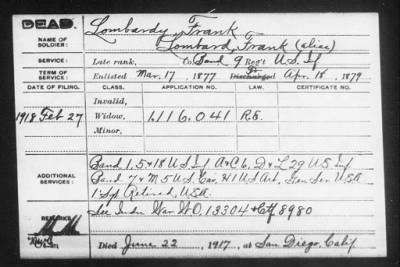 DEAD.
NAME OF SOLDIER:
Lombardy, Frank
Lombard, Frank (alias)
SERVICE:
Late rank, Co Band 9 Reg't U.S. Inf
TERM OF SERVICE:
Enlisted Mar. 17, 1877 Discharged Apr. 18, 1879
DATE OF FILING. CLASS. APPLICATION NO. LAW. CERTIFICATE NO.
Invalid,
1918 Feb 27 Widow, 1116.041 R.S.
Minor,
ADDITIONAL SERVICES:
Band 1, 5 & 18 U S Inf A & C 6, D & L 29 U S Inf
Band 7 & M 5 U S Cav. 41 U S Art, Gen Ser U S A
1" Sgt Retired, U.S.A.
REMARKS:
See Indn War W.O. 13304 & Ctf 8980
Died June 22, 1917, at San Diego, Calif